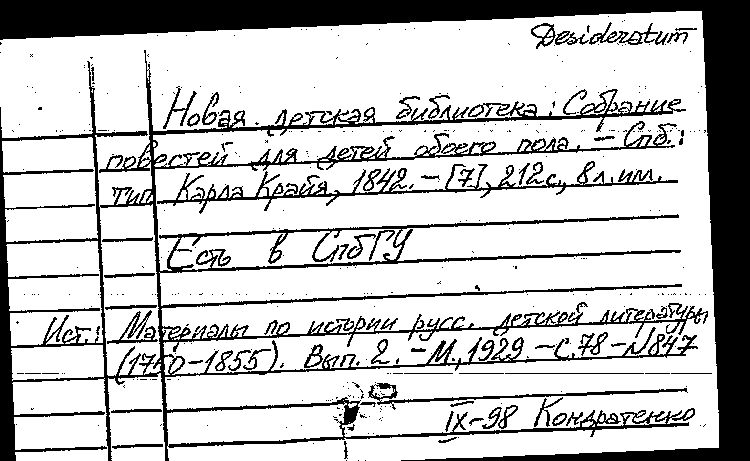 Desideratum
Новая детская библиотека: Собрание
повестей для детей обоего пола. — Спб.:
тип. Карла Крайя, 1842. — [7], 212с., 8 л. им.
Есть в СпбГУ
Ист.: Материалы по истории русс. детской литературы
(1750-1855). Вып. 2. — М., 1929. — С. 78 — №847
IX-98 Кондратенко